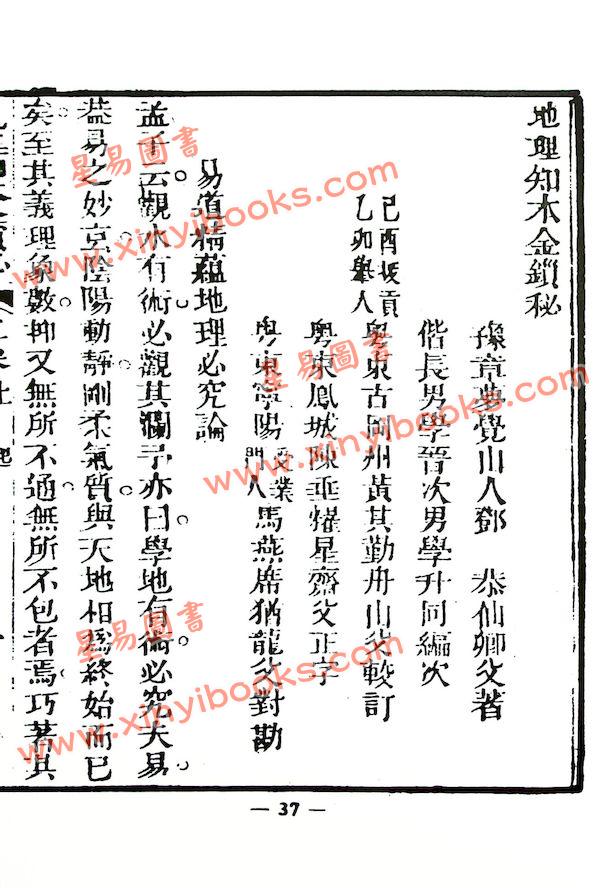 地理知本金鎖秘
豫章夢覺山人鄧 恭仙卿父著
偕長男學晉次男學升同編次
己酉拔貢
乙卯舉人
粵東古岡州黃其勤舟山父較訂
粵東鳳城陳垂燿星齋父正字
粵東寧陽受業門人馬燕席猶龍父對勘
易道精蘊地理必究論
孟子云觀水有術必觀其瀾予亦曰學地有術必究夫易
葢易之妙京陰陽動靜剛柔氣質與天地相爲終始而已
矣至其義理象數抑又無所不通無所不包者焉巧著其
星易圖書
www.xinyibooks.com
星易圖書
www.xinyibooks.com
星易圖書
www.xinyibooks.com
— 37 —